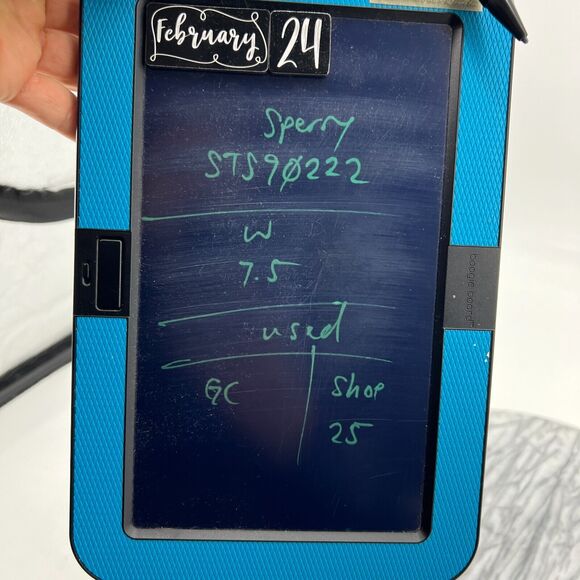 February 24
Sperry
STS90222
W
7.5
used
GC
Shoe
25
boogie board™